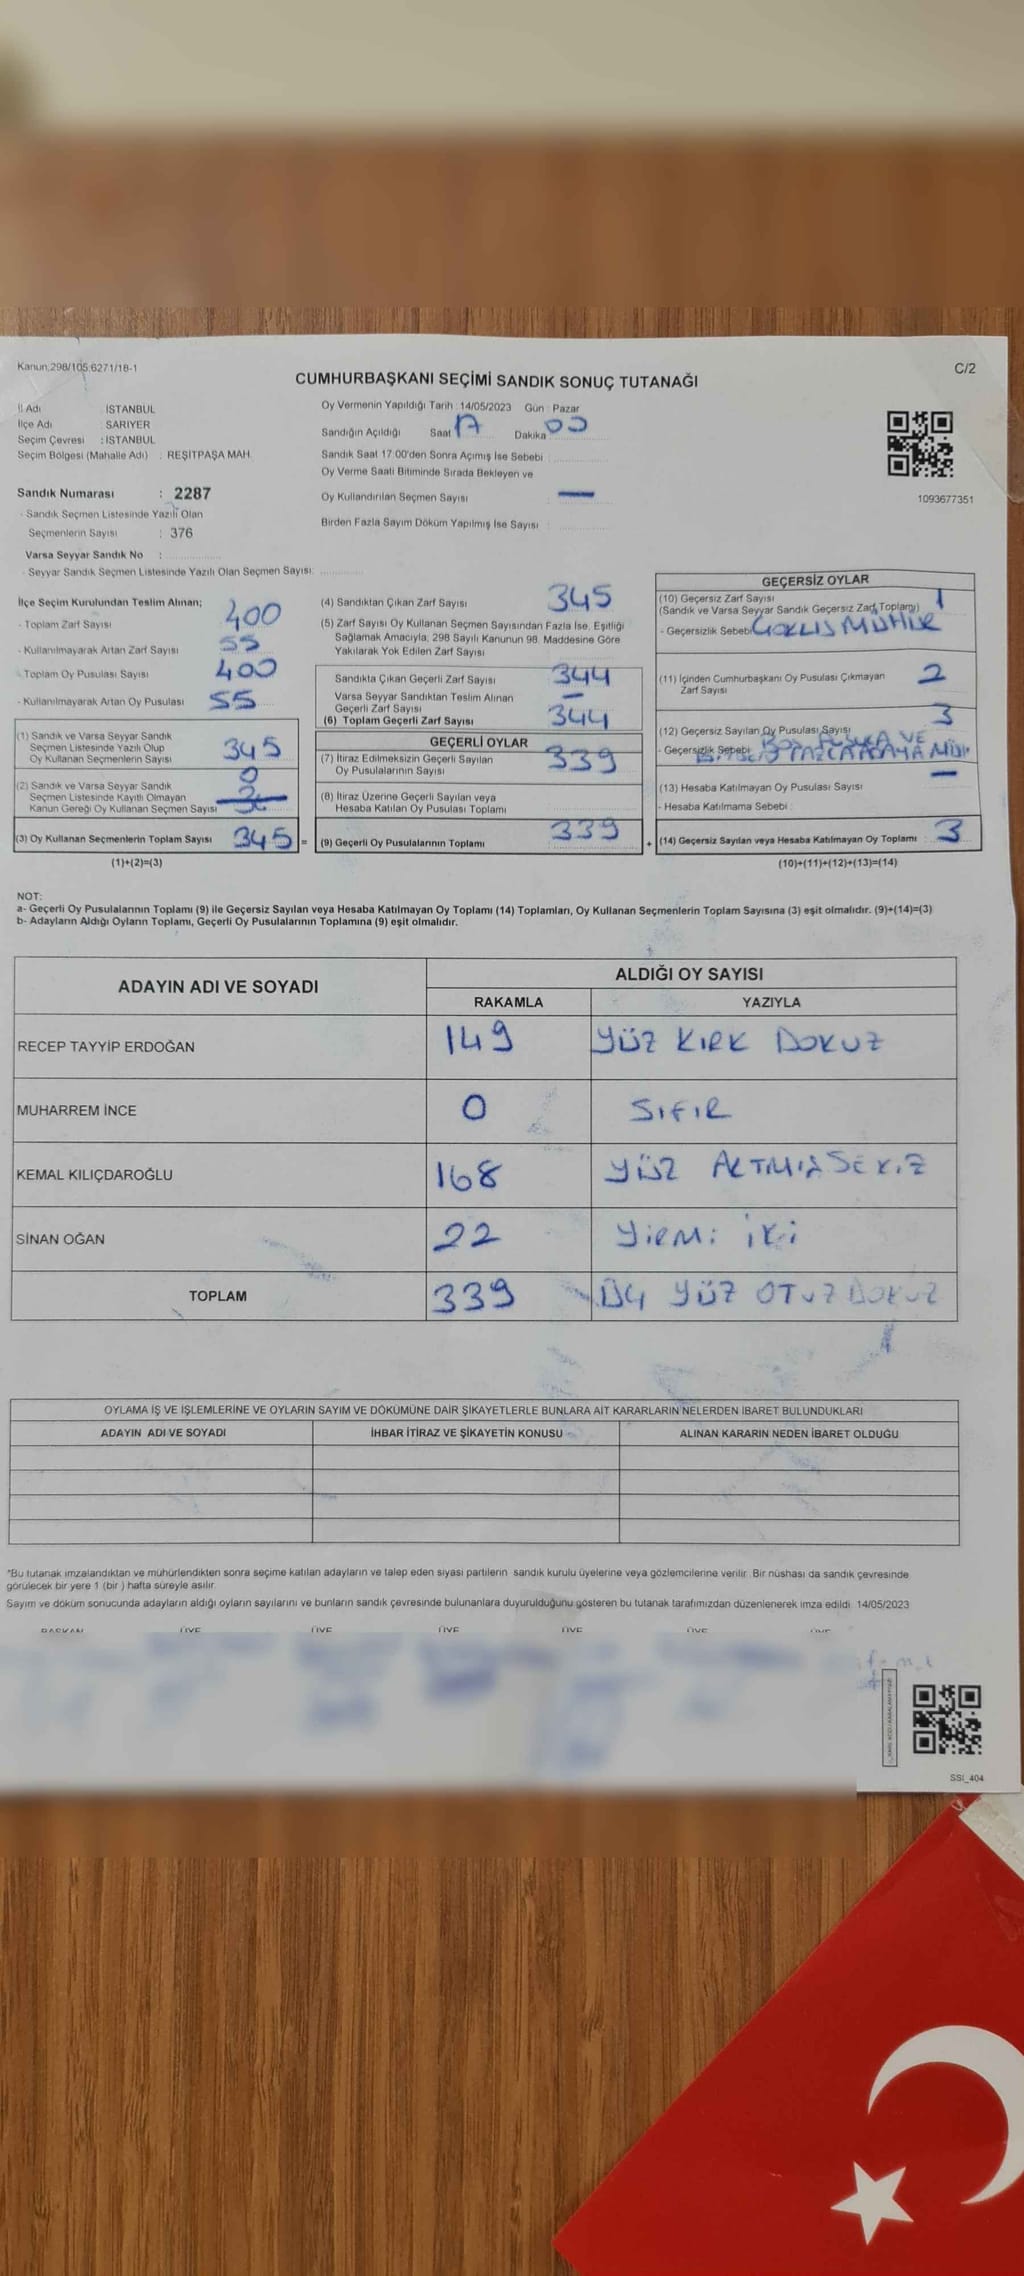 Kanun.298/105:6271/18-1
C/2
CUMHURBAŞKANI SEÇİMİ SANDIK SONUÇ TUTANAĞI
İl Adı : İSTANBUL
İlçe Adı : SARIYER
Seçim Çevresi : İSTANBUL
Seçim Bölgesi (Mahalle Adı) : REŞİTPAŞA MAH.
Sandık Numarası : 2287
- Sandık Seçmen Listesinde Yazılı Olan
Seçmenlerin Sayısı : 376
Varsa Seyyar Sandık No :
- Seyyar Sandık Seçmen Listesinde Yazılı Olan Seçmen Sayısı:
Oy Vermenin Yapıldığı Tarih : 14/05/2023 Gün : Pazar
Sandığın Açıldığı Saat 17 Dakika 00
Sandık Saat 17:00'den Sonra Açımış İse Sebebi :
Oy Verme Saati Bitiminde Sırada Bekleyen ve
Oy Kullandırılan Seçmen Sayısı : —
Birden Fazla Sayım Döküm Yapılmış İse Sayısı :
1093677351
İlçe Seçim Kurulundan Teslim Alınan;
- Toplam Zarf Sayısı 400
- Kullanılmayarak Artan Zarf Sayısı 55
- Toplam Oy Pusulası Sayısı 400
- Kullanılmayarak Artan Oy Pusulası 55
(1) Sandık ve Varsa Seyyar Sandık
Seçmen Listesinde Yazılı Olup
Oy Kullanan Seçmenlerin Sayısı 345
(2) Sandık ve Varsa Seyyar Sandık 0
Seçmen Listesinde Kayıtlı Olmayan
Kanun Gereği Oy Kullanan Seçmen Sayısı
(3) Oy Kullanan Seçmenlerin Toplam Sayısı 345 =
(1)+(2)=(3)
(4) Sandıktan Çıkan Zarf Sayısı 345
(5) Zarf Sayısı Oy Kullanan Seçmen Sayısından Fazla İse, Eşitliği
Sağlamak Amacıyla, 298 Sayılı Kanunun 98. Maddesine Göre
Yakılarak Yok Edilen Zarf Sayısı
Sandıkta Çıkan Geçerli Zarf Sayısı 344
Varsa Seyyar Sandıktan Teslim Alınan
Geçerli Zarf Sayısı —
(6) Toplam Geçerli Zarf Sayısı 344
GEÇERLİ OYLAR
(7) İtiraz Edilmeksizin Geçerli Sayılan
Oy Pusulalarının Sayısı 339
(8) İtiraz Üzerine Geçerli Sayılan veya
Hesaba Katılan Oy Pusulası Toplamı
(9) Geçerli Oy Pusulalarının Toplamı 339 +
GEÇERSİZ OYLAR
(10) Geçersiz Zarf Sayısı 1
(Sandık ve Varsa Seyyar Sandık Geçersiz Zarf Toplamı)
- Geçersizlik Sebebi: MÜHÜR
(11) İçinden Cumhurbaşkanı Oy Pusulası Çıkmayan 2
Zarf Sayısı
(12) Geçersiz Sayılan Oy Pusulası Sayısı 3
- Geçersizlik Sebebi VE
(13) Hesaba Katılmayan Oy Pusulası Sayısı —
- Hesaba Katılmama Sebebi :
(14) Geçersiz Sayılan veya Hesaba Katılmayan Oy Toplamı 3
(10)+(11)+(12)+(13)=(14)
NOT:
a- Geçerli Oy Pusulalarının Toplamı (9) ile Geçersiz Sayılan veya Hesaba Katılmayan Oy Toplamı (14) Toplamları, Oy Kullanan Seçmenlerin Toplam Sayısına (3) eşit olmalıdır. (9)+(14)=(3)
b- Adayların Aldığı Oyların Toplamı, Geçerli Oy Pusulalarının Toplamına (9) eşit olmalıdır.
ADAYIN ADI VE SOYADI
ALDIĞI OY SAYISI
RAKAMLA YAZIYLA
RECEP TAYYİP ERDOĞAN 149 YÜZ KIRK DOKUZ
MUHARREM İNCE 0 SIFIR
KEMAL KILIÇDAROĞLU 168 YÜZ ALTMIŞ SEKİZ
SİNAN OĞAN 22 YİRMİ İKİ
TOPLAM 339 ÜÇ YÜZ OTUZ DOKUZ
OYLAMA İŞ VE İŞLEMLERİNE VE OYLARIN SAYIM VE DÖKÜMÜNE DAİR ŞİKAYETLERLE BUNLARA AİT KARARLARIN NELERDEN İBARET BULUNDUKLARI
ADAYIN ADI VE SOYADI İHBAR İTİRAZ VE ŞİKAYETİN KONUSU ALINAN KARARIN NEDEN İBARET OLDUĞU
*Bu tutanak imzalandıktan ve mühürlendikten sonra seçime katılan adayların ve talep eden siyasi partilerin sandık kurulu üyelerine veya gözlemcilerine verilir. Bir nüshası da sandık çevresinde
görülecek bir yere 1 (bir ) hafta süreyle asılır.
Sayım ve döküm sonucunda adayların aldığı oyların sayılarını ve bunların sandık çevresinde bulunanlara duyurulduğunu gösteren bu tutanak tarafımızdan düzenlenerek imza edildi. 14/05/2023
BAŞKAN ÜYE ÜYE ÜYE ÜYE ÜYE ÜYE
SSI_404